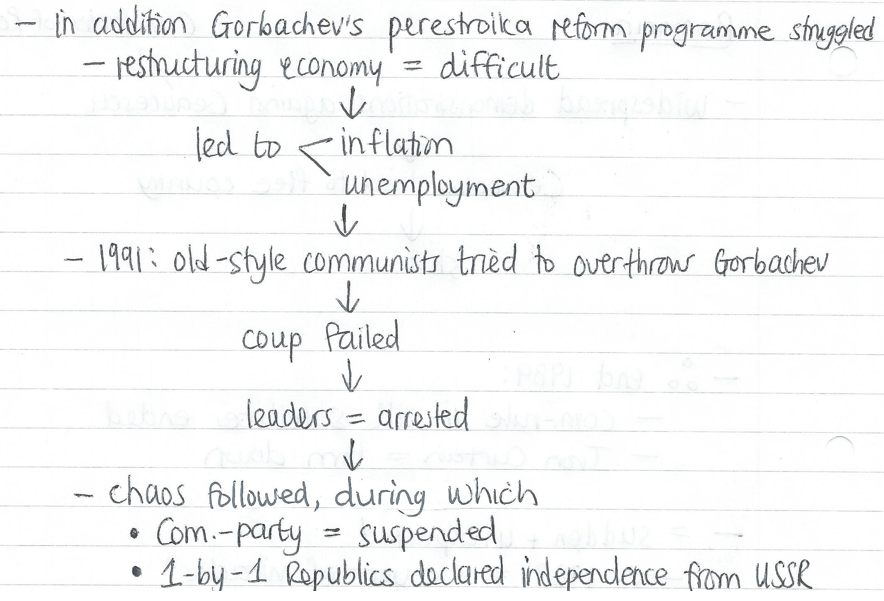 - in addition Gorbachev's perestroika reform programme struggled
- restructuring economy = difficult
↓
led to < inflation
unemployment
↓
- 1991: old-style communists tried to overthrow Gorbachev
↓
coup failed
↓
leaders = arrested
↓
- chaos followed, during which
• Com.-party = suspended
• 1-by-1 Republics declared independence from USSR